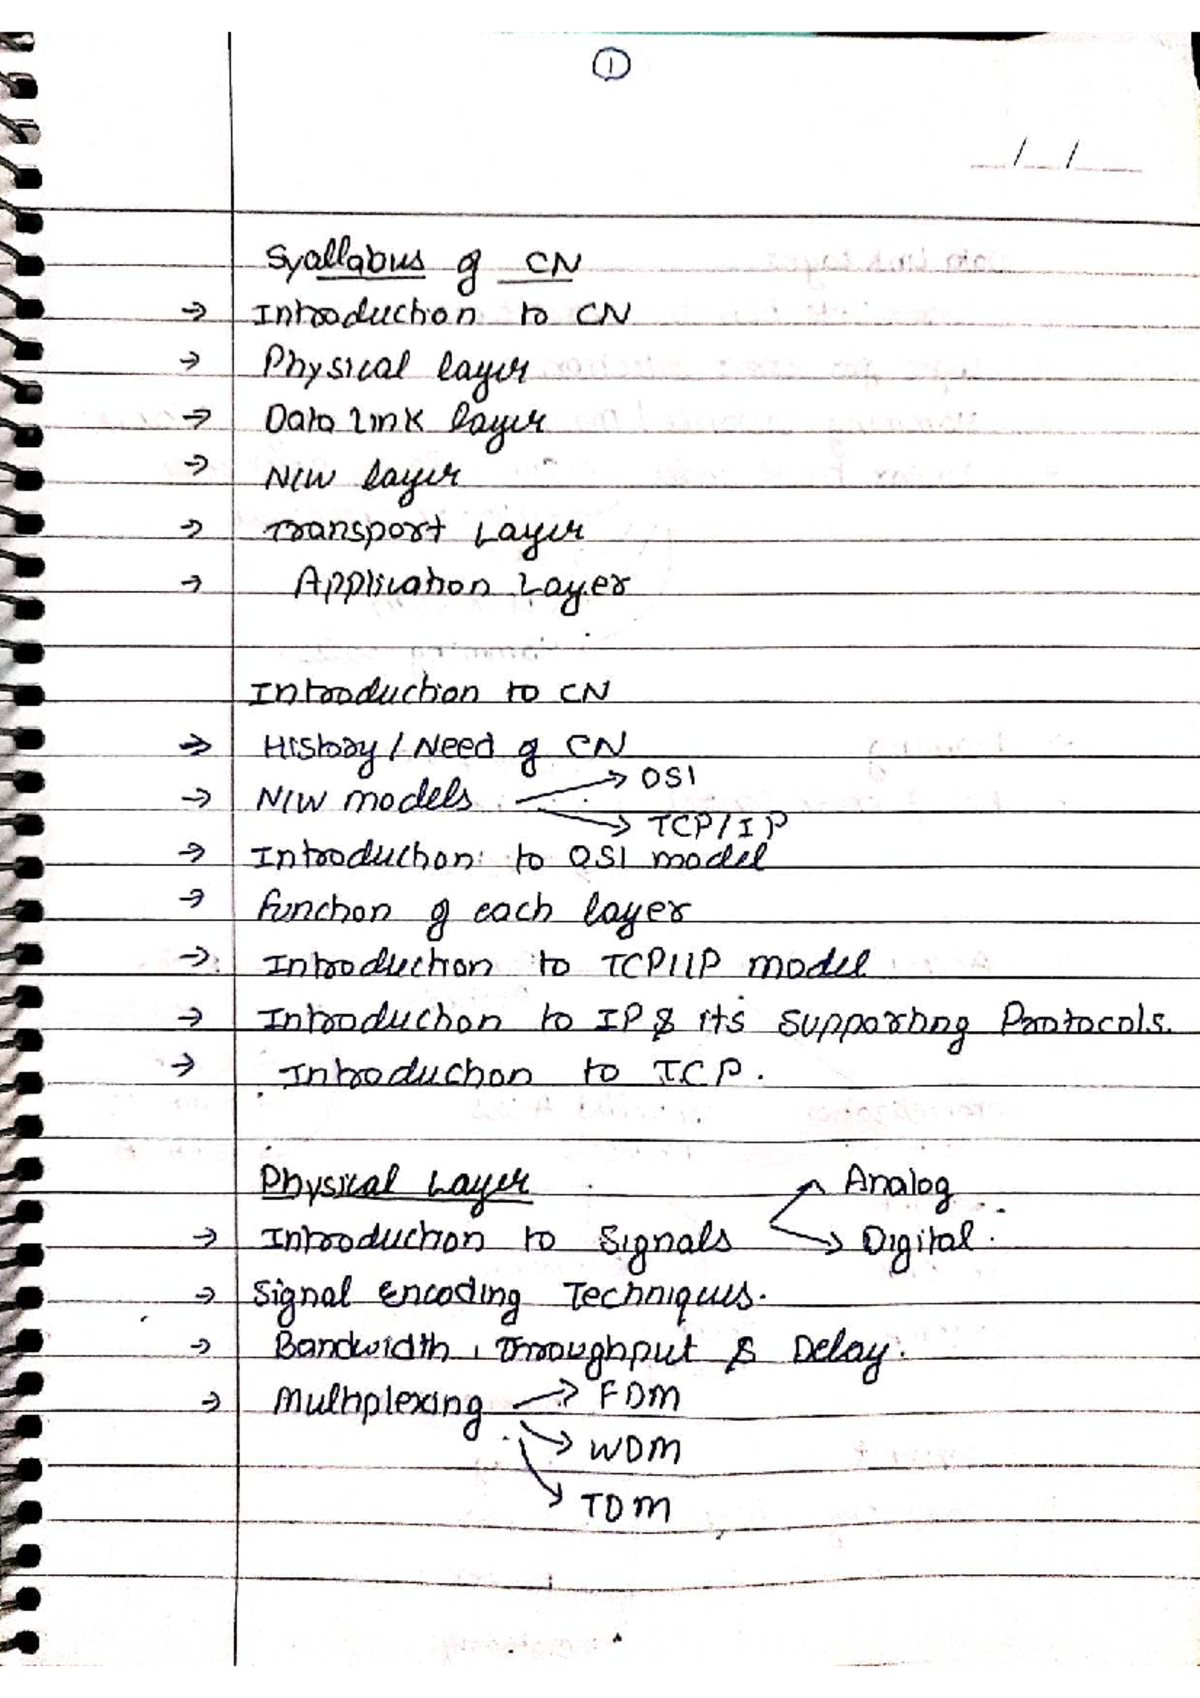 1
/ /
Syallabus of CN
→ Introduction to CN
→ Physical layer
→ Data link layer
→ N/W layer
→ Transport Layer
→ Application Layer
Introduction to CN
→ History / Need of CN
→ N/W models → OSI
→ TCP/IP
→ Introduction to OSI model
→ function of each layer
→ Introduction to TCP/IP model
→ Introduction to IP & its supporting Protocols.
→ Introduction to TCP.
Physical Layer → Analog
→ Introduction to Signals → Digital.
→ Signal Encoding Techniques.
→ Bandwidth, Throughput & Delay.
→ Multiplexing → FDM
→ WDM
→ TDM